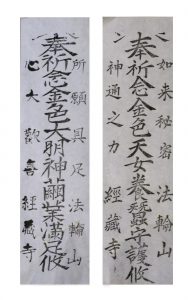 如来秘密 法輪山
奉祈念金色天女養蠶守護攸
神通之力 經蔵寺
所願具足 法輪山
奉祈念金色大明神繭葉満足攸
心大歓喜 經蔵寺